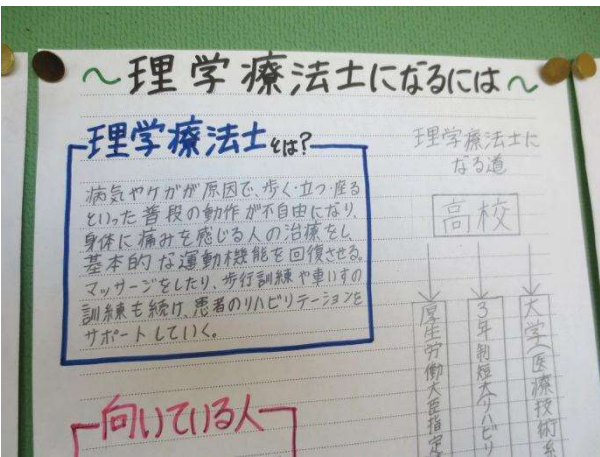 ～理学療法士になるには～
理学療法士とは?
病気やケガが原因で、歩く・立つ・座る
といった普段の動作が不自由になり、
身体に痛みを感じる人の治療をし、
基本的な運動機能を回復させる。
マッサージをしたり、歩行訓練や車いすの
訓練も続け、患者のリハビリテーションを
サポートしていく。
向いている人
理学療法士に
なる道
高校
厚生労働大臣指定
3年制短大リハビリ
大学(医療技術系